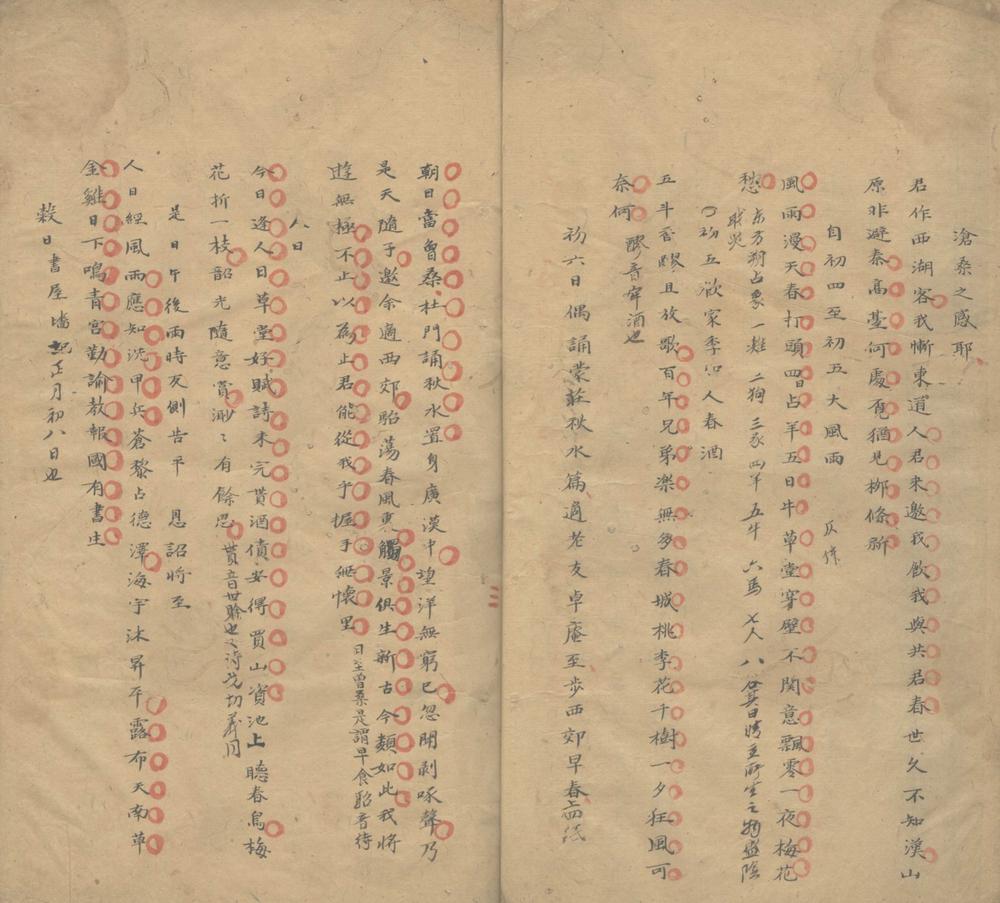 滄桑之感耶
君作西湖客我慚東道人君來邀我飲我與共君春世久不知漢山
原非避秦高臺何處覓猶見柳條新
自初四至初五大風雨 仄作
風雨漫天春打頭四日占羊五日牛草堂穿壁不關意飄零一夜梅花
愁 東方朔占象一雞二狗三豕四羊五牛六馬七人八谷其日晴主所生之物盛陰
則災
初五飲家季四人春酒
五斗香醪且放歌百年兄弟樂無多春城桃李花千樹一夕狂風可
奈何 醪音牢酒也
初六日偶誦蒙莊秋水篇適老友卓庵至步西郊早春
朝日當曾桑杜門誦秋水置身廣漠中望洋無窮已忽聞剥啄聲乃
是天隨子邀余適西郊駘蕩春風裏觸景俱生新古今類如此我將
遊無極不止以為止君能從我乎握手無懷里 日至曾桑是謂早食駘音待
人日
今日逢人日草堂好賦詩未完貰酒債安得買山資池上聽春鳥梅
花折一枝韶光隨意賞渺渺有餘思 貰音世賒也又詩戈切義同
是日午後雨時反側告平 恩詔將至
人日經風雨應知洗甲兵蒼黎占德澤海宇沐昇平露布天南草
金雞日下鳴青宮勤諭教報國有書生
榖日書屋墻 正月初八日也